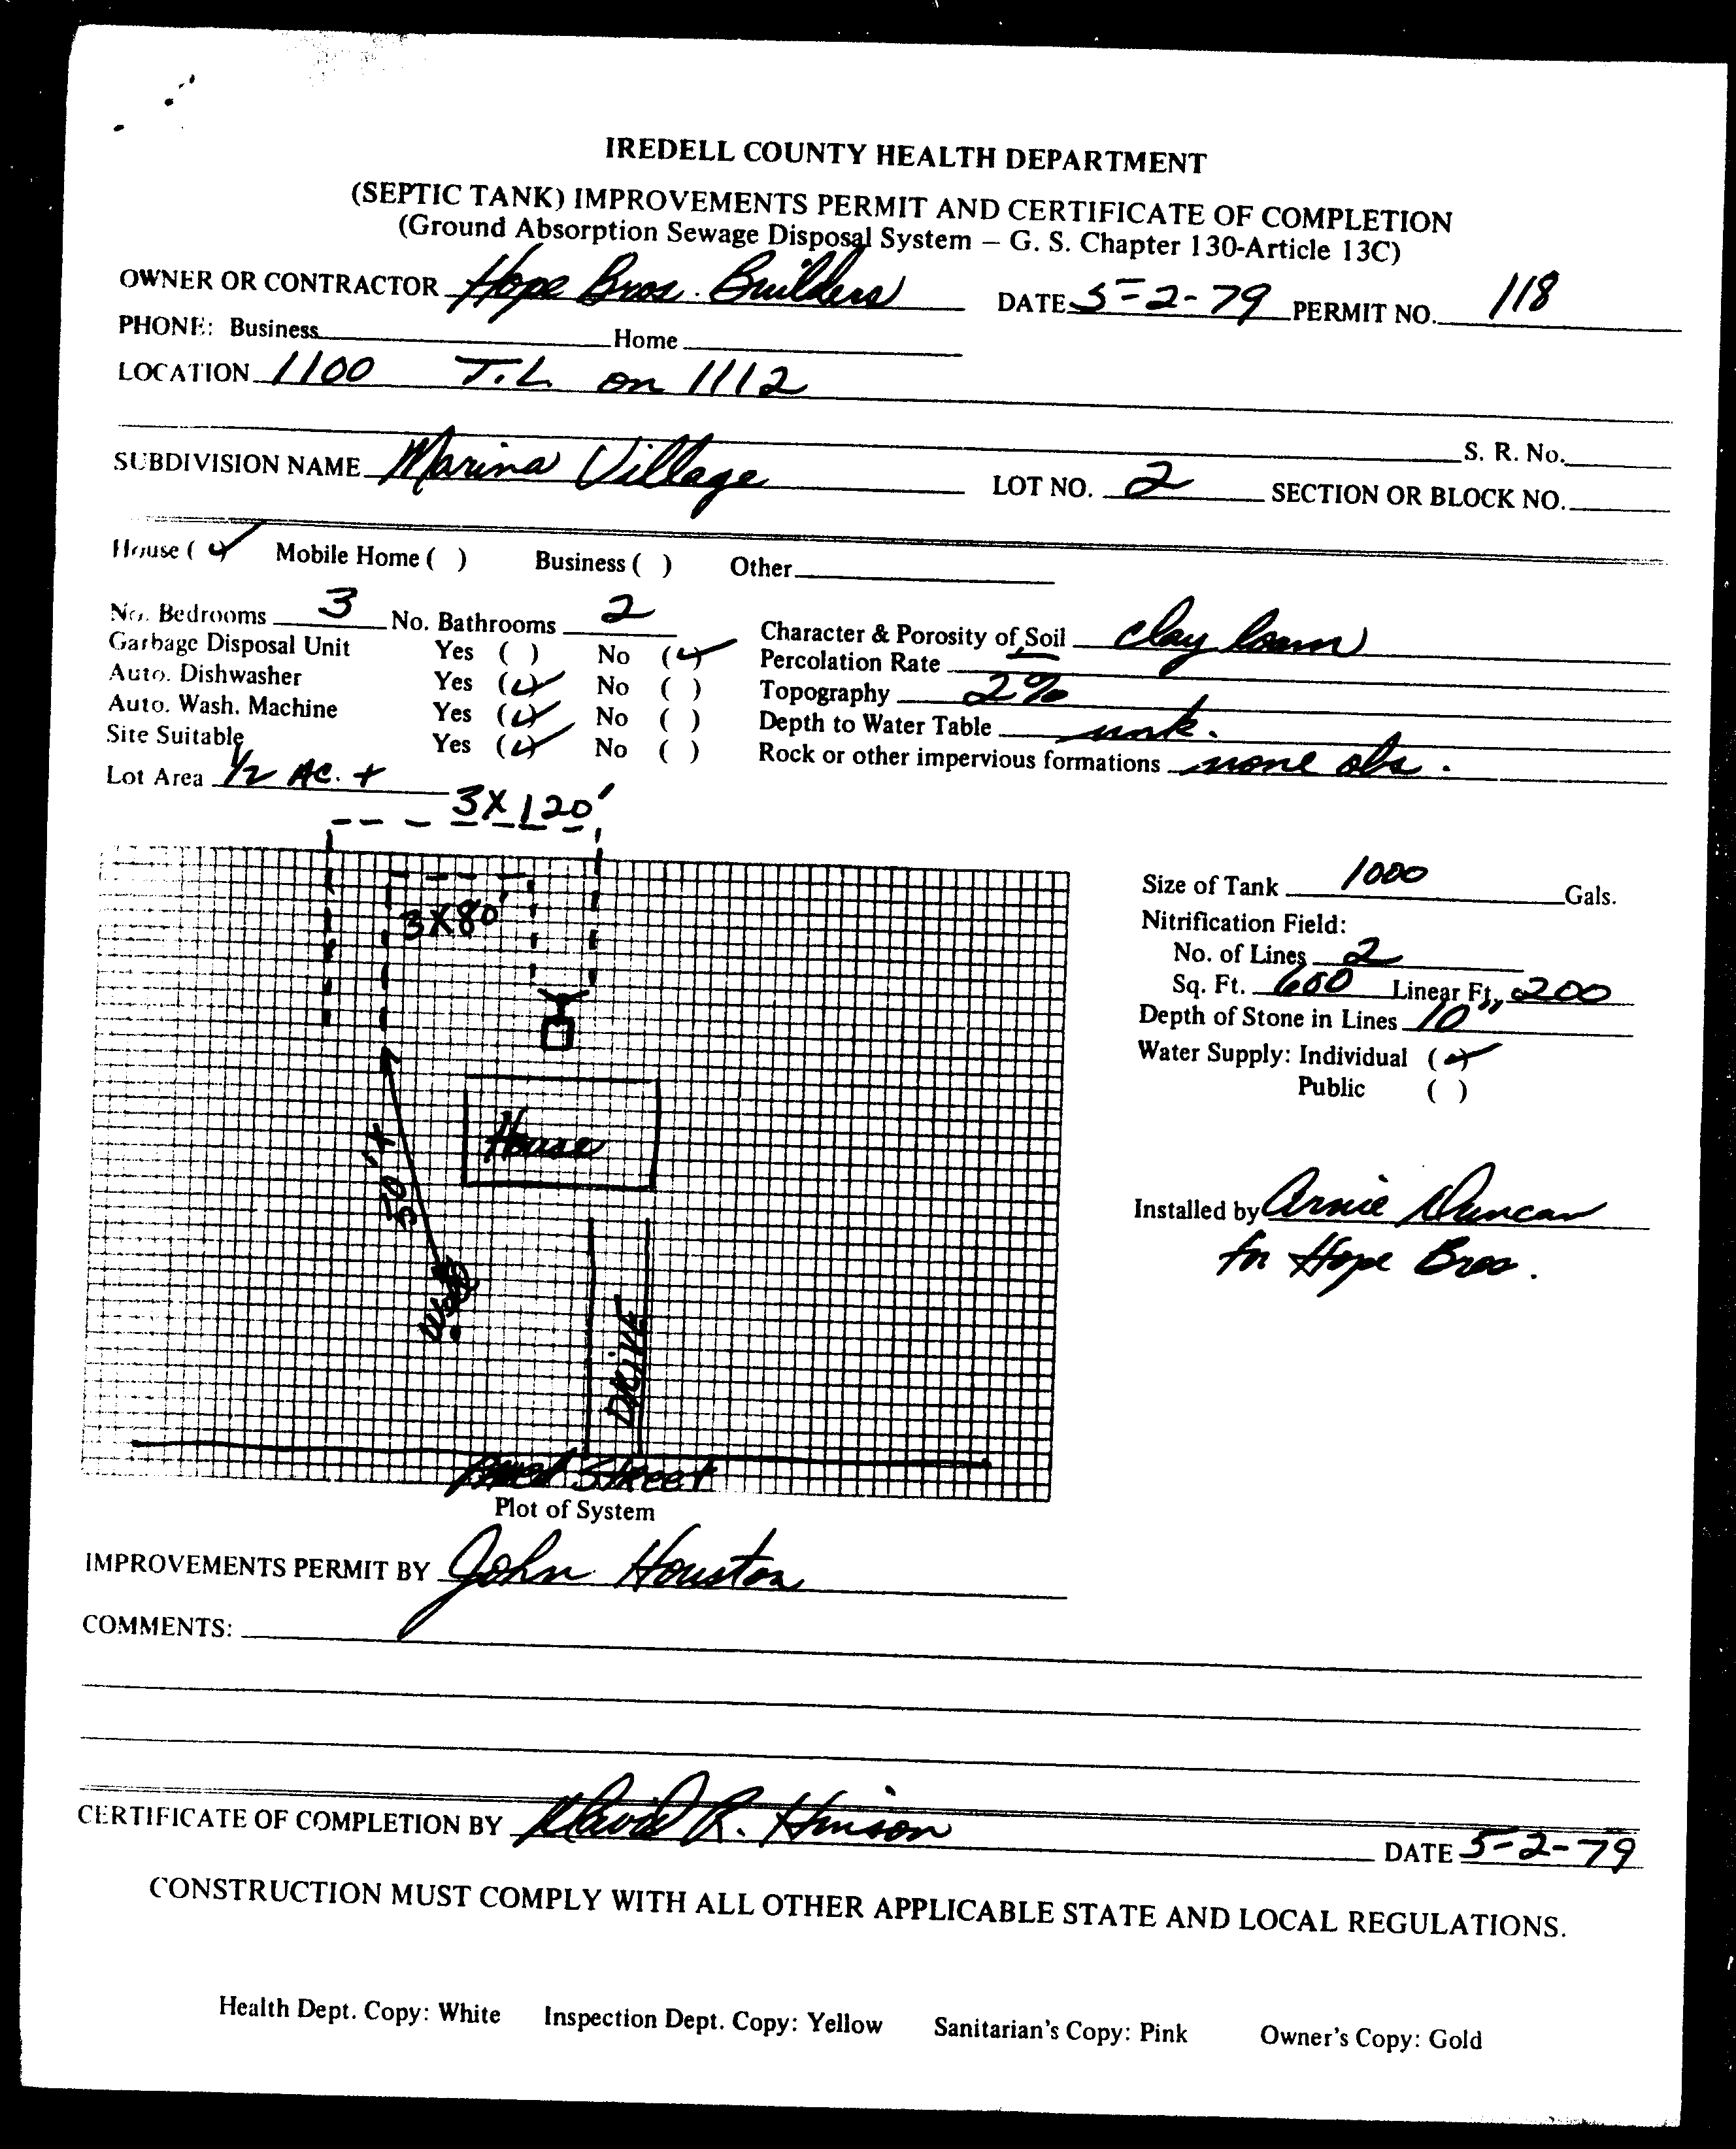 IREDELL COUNTY HEALTH DEPARTMENT
(SEPTIC TANK) IMPROVEMENTS PERMIT AND CERTIFICATE OF COMPLETION
(Ground Absorption Sewage Disposal System – G. S. Chapter 130-Article 13C)
OWNER OR CONTRACTOR Hope Bros. Builders DATE 5-2-79 PERMIT NO. 118
PHONE: Business Home
LOCATION 1100 T.L. on 1112
S. R. No.
SUBDIVISION NAME Marina Village LOT NO. 2 SECTION OR BLOCK NO.
House (✓) Mobile Home ( ) Business ( ) Other
No. Bedrooms 3 No. Bathrooms 2 Character & Porosity of Soil clay loam
Garbage Disposal Unit Yes ( ) No (✓) Percolation Rate —
Auto. Dishwasher Yes (✓) No ( ) Topography 2%
Auto. Wash. Machine Yes (✓) No ( ) Depth to Water Table unk.
Site Suitable Yes (✓) No ( ) Rock or other impervious formations none obs.
Lot Area 1/2 AC. +
3X120'
3X80'
Size of Tank 1000 Gals.
Nitrification Field:
No. of Lines 2
Sq. Ft. 600 Linear Ft. 200
Depth of Stone in Lines 10"
Water Supply: Individual (✓)
Public ( )
House
50'+
Well
DRIVE
Installed by Arnie Duncan
for Hope Bros.
Paved Street
Plot of System
IMPROVEMENTS PERMIT BY John Houston
COMMENTS:
CERTIFICATE OF COMPLETION BY David R. Hinson DATE 5-2-79
CONSTRUCTION MUST COMPLY WITH ALL OTHER APPLICABLE STATE AND LOCAL REGULATIONS.
Health Dept. Copy: White Inspection Dept. Copy: Yellow Sanitarian's Copy: Pink Owner's Copy: Gold